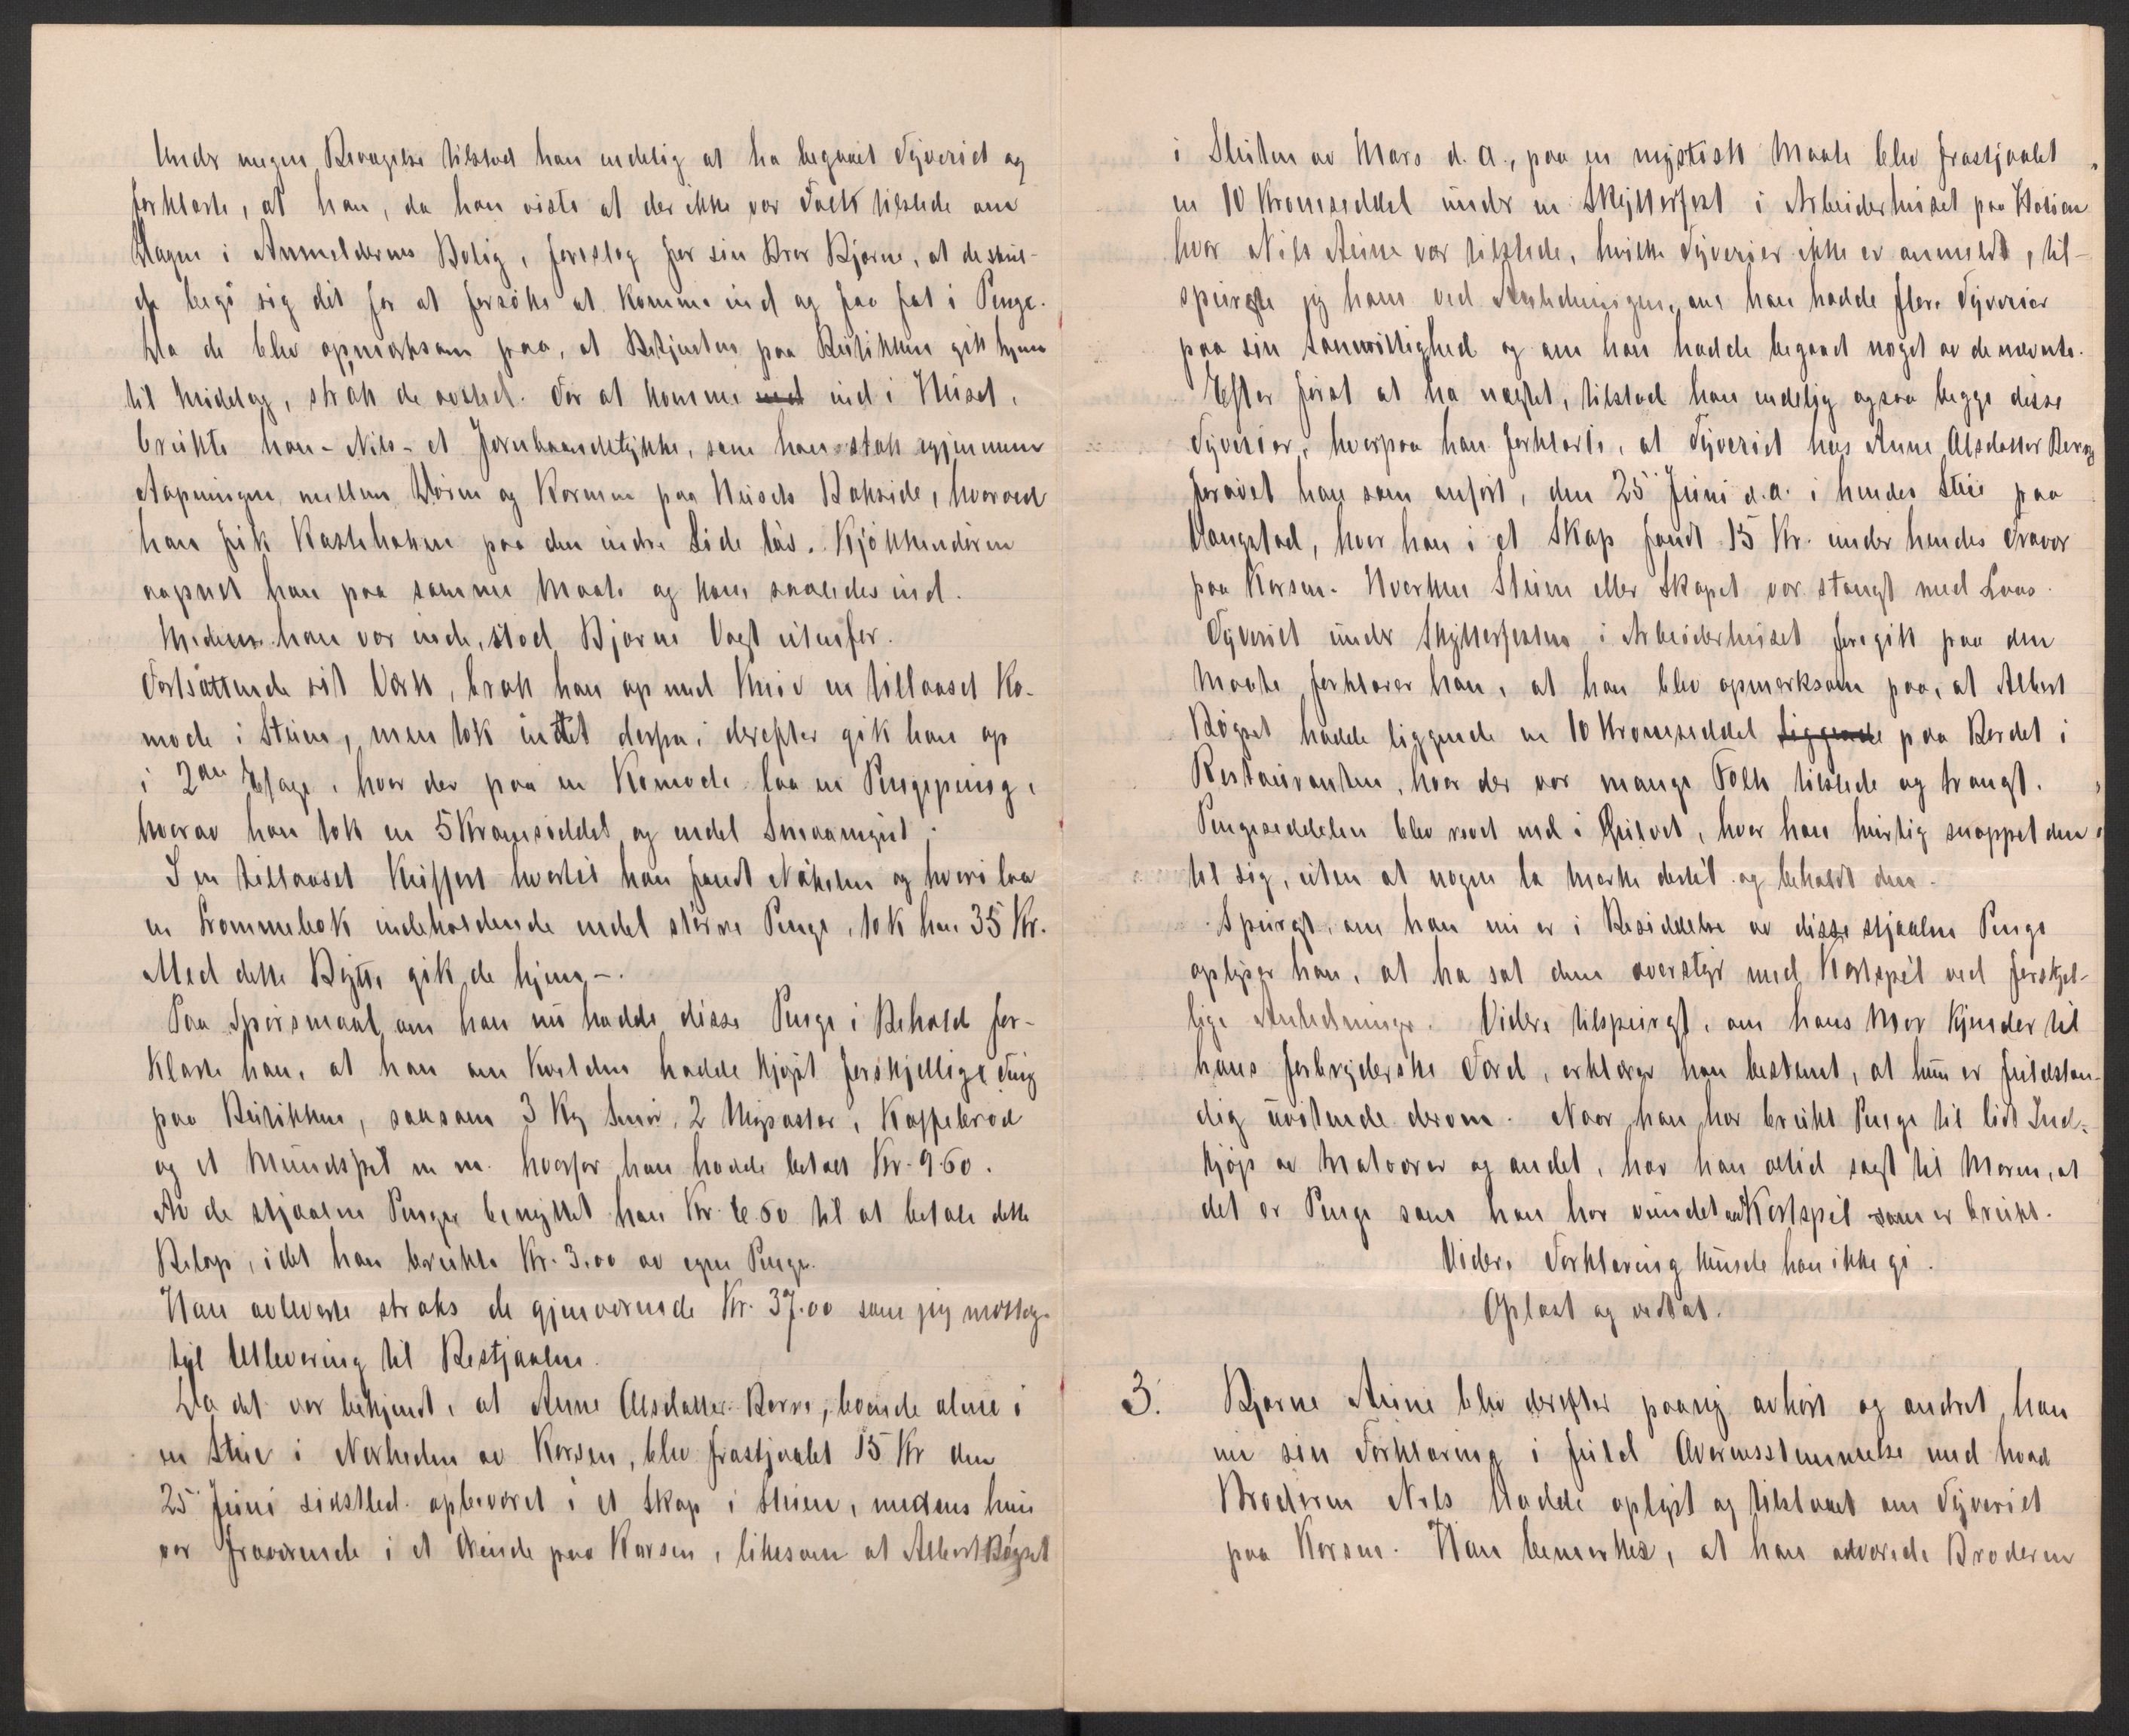 Under megen Bevægelse tilstod han endelig at ha begaaet Tyveriet og
forklarte, at han, da han viste at der ikke var Folk tilstede om
Dagen i Anmelderens Bolig, foreslog for sin Bror Bjarne, at de skul-
de begi sig dit for at forsöke at komme ind og faa fat i Penge.
Da de blev opmerksom paa, at Betjenten paa Butikken gik hjem
til Middag, strök de avsted. For at komme ind ind i Huset,
brukte han - Nils - et Jernbaandstykke, som han stak igjennem
Aapningen mellem Dören og Karmen paa Husets Bakside, hvorved
han fik Kastehaken paa den indre Side lös. Kjökkendören
aapnet han paa samme Maate og kom saaledes ind.
Medens han var inde, stod Bjarne Vagt utenfor.
Fortsættende sit Værk, bröt han op med Kniv en tillaaset Ko-
mode i Stuen, men tok intet derfra; derefter gik han op
i 2den Etage, hvor der paa en Komode laa en Pengepung,
hvorav han tok en 5 Kroneseddel og endel Smaamynt.
I en tillaaset Kuffert hvortil han fandt Nökelen og hvori laa
en Lommebok indeholdende endel större Penge, tok han 35 Kr.
Med dette Bytte gik de hjem -.
Paa Spörsmaal om han nu hadde disse Penge i Behold for-
klarte han, at han om Kvelden hadde kjöpt forskjellige Ting
paa Butikken, saasom 3 Kg Smör, 2 Mysoster, Kaffebröd
og et Mundspil m m. hvorfor han hadde betalt Kr. 9.60.
Av de stjaalne Penger benyttet han Kr. 6.60 til at betale dette
Belöp, idet han brukte Kr. 3.00 av egne Penge.
Han avleverte straks de gjenværende Kr. 37.00 som jeg mottog
til Utlevering til Bestjaalne.
Da det var bekjendt, at Anne Olsdatter Berre, boende alene i
en Stue i Nærheden av Korsen, blev frastjaalet 15 Kr den
25 Juni sidstled. opbevaret i et Skap i Stuen, medens hun
var fraværende i et Ærende paa Korsen, likesom at Albert Böyset
i Slutten av Mars d. a., paa en mystisk Maate blev frastjaalet
en 10 Kroneseddel under en Skytterfest i Arbeiderhuset paa
hvor Nils Aune var tilstede, hvilke Tyverier ikke er anmeldt, til-
spurgte jeg ham ved Anledningen, om han hadde flere Tyverier
paa sin Samvittighed og om han hadde begaaet noget av de nævnte.
Efter först at ha nægtet, tilstod han endelig ogsaa begge disse
Tyverier, hvorpaa han forklarte, at Tyveriet hos Anne Olsdatter Berre
forövet han som anfört, den 25 Juni d.a. i hendes Stue paa
Vangstad, hvor han i et Skap fandt 15 Kr. under hendes Fravær
paa Korsen. Hverken Stuen eller Skapet var stængt med Laas.
Tyveriet under Skytterfesten i Arbeiderhuset foregik paa den
Maate forklarer han, at han blev opmerksom paa, at Albert
Böyset hadde liggende en 10 Kroneseddel liggende paa Bordet i
Restauranten, hvor der var mange Folk tilstede og trangt.
Pengeseddelen blev revet ned i Gulvet, hvor han hurtig snappet den
til sig, uten at nogen la Merke dertil og beholdt den.
Spurgt, om han nu er i Besiddelse av disse stjaalne Penge
oplyser han, at ha sat dem overstyr med Kortspil ved forskjel-
lige Anledninger. Videre tilspurgt, om hans Mor kjender til
hans forbryderske Færd, erklærer han bestemt, at hun er fuldstæn-
dig uvitende derom. Naar han har brukt Penge til lidt Ind-
kjöp av Matvarer og andet, har han altid sagt til Moren, at
det er Penge som han har vundet ved Kortspil som er brukt.
Videre Forklaring kunde han ikke gi.
Oplæst og vedtat.
3. Bjarne Aune blev derefter paany avhört og ændret han
nu sin Forklaring i fuld Overensstemmelse med hvad
Broderen Nils hadde oplyst og tilstaaet om Tyveriet
paa Korsen. Han bemerker, at han advarede Broderen